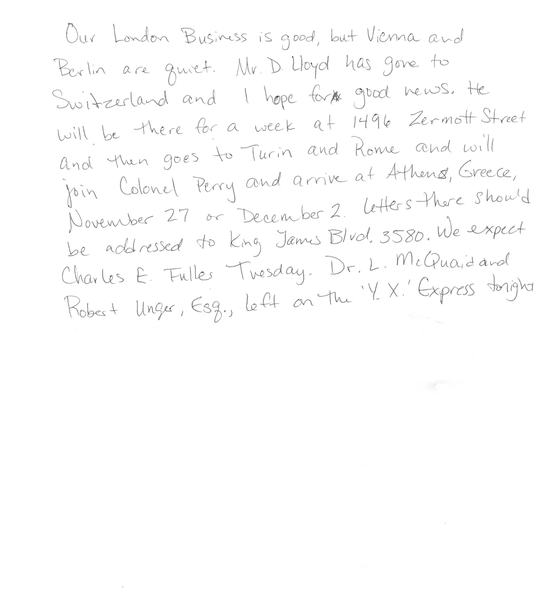 Our London Business is good, but Vienna and
Berlin are quiet. Mr. D. Lloyd has gone to
Switzerland and I hope for good news. He
will be there for a week at 1496 Zermott Street
and then goes to Turin and Rome and will
join Colonel Perry and arrive at Athens, Greece,
November 27 or December 2. Letters there should
be addressed to King James Blvd. 3580. We expect
Charles E. Fuller Tuesday. Dr. L. McQuaid and
Robert Unger, Esq., left on the 'Y. X.' Express tonight